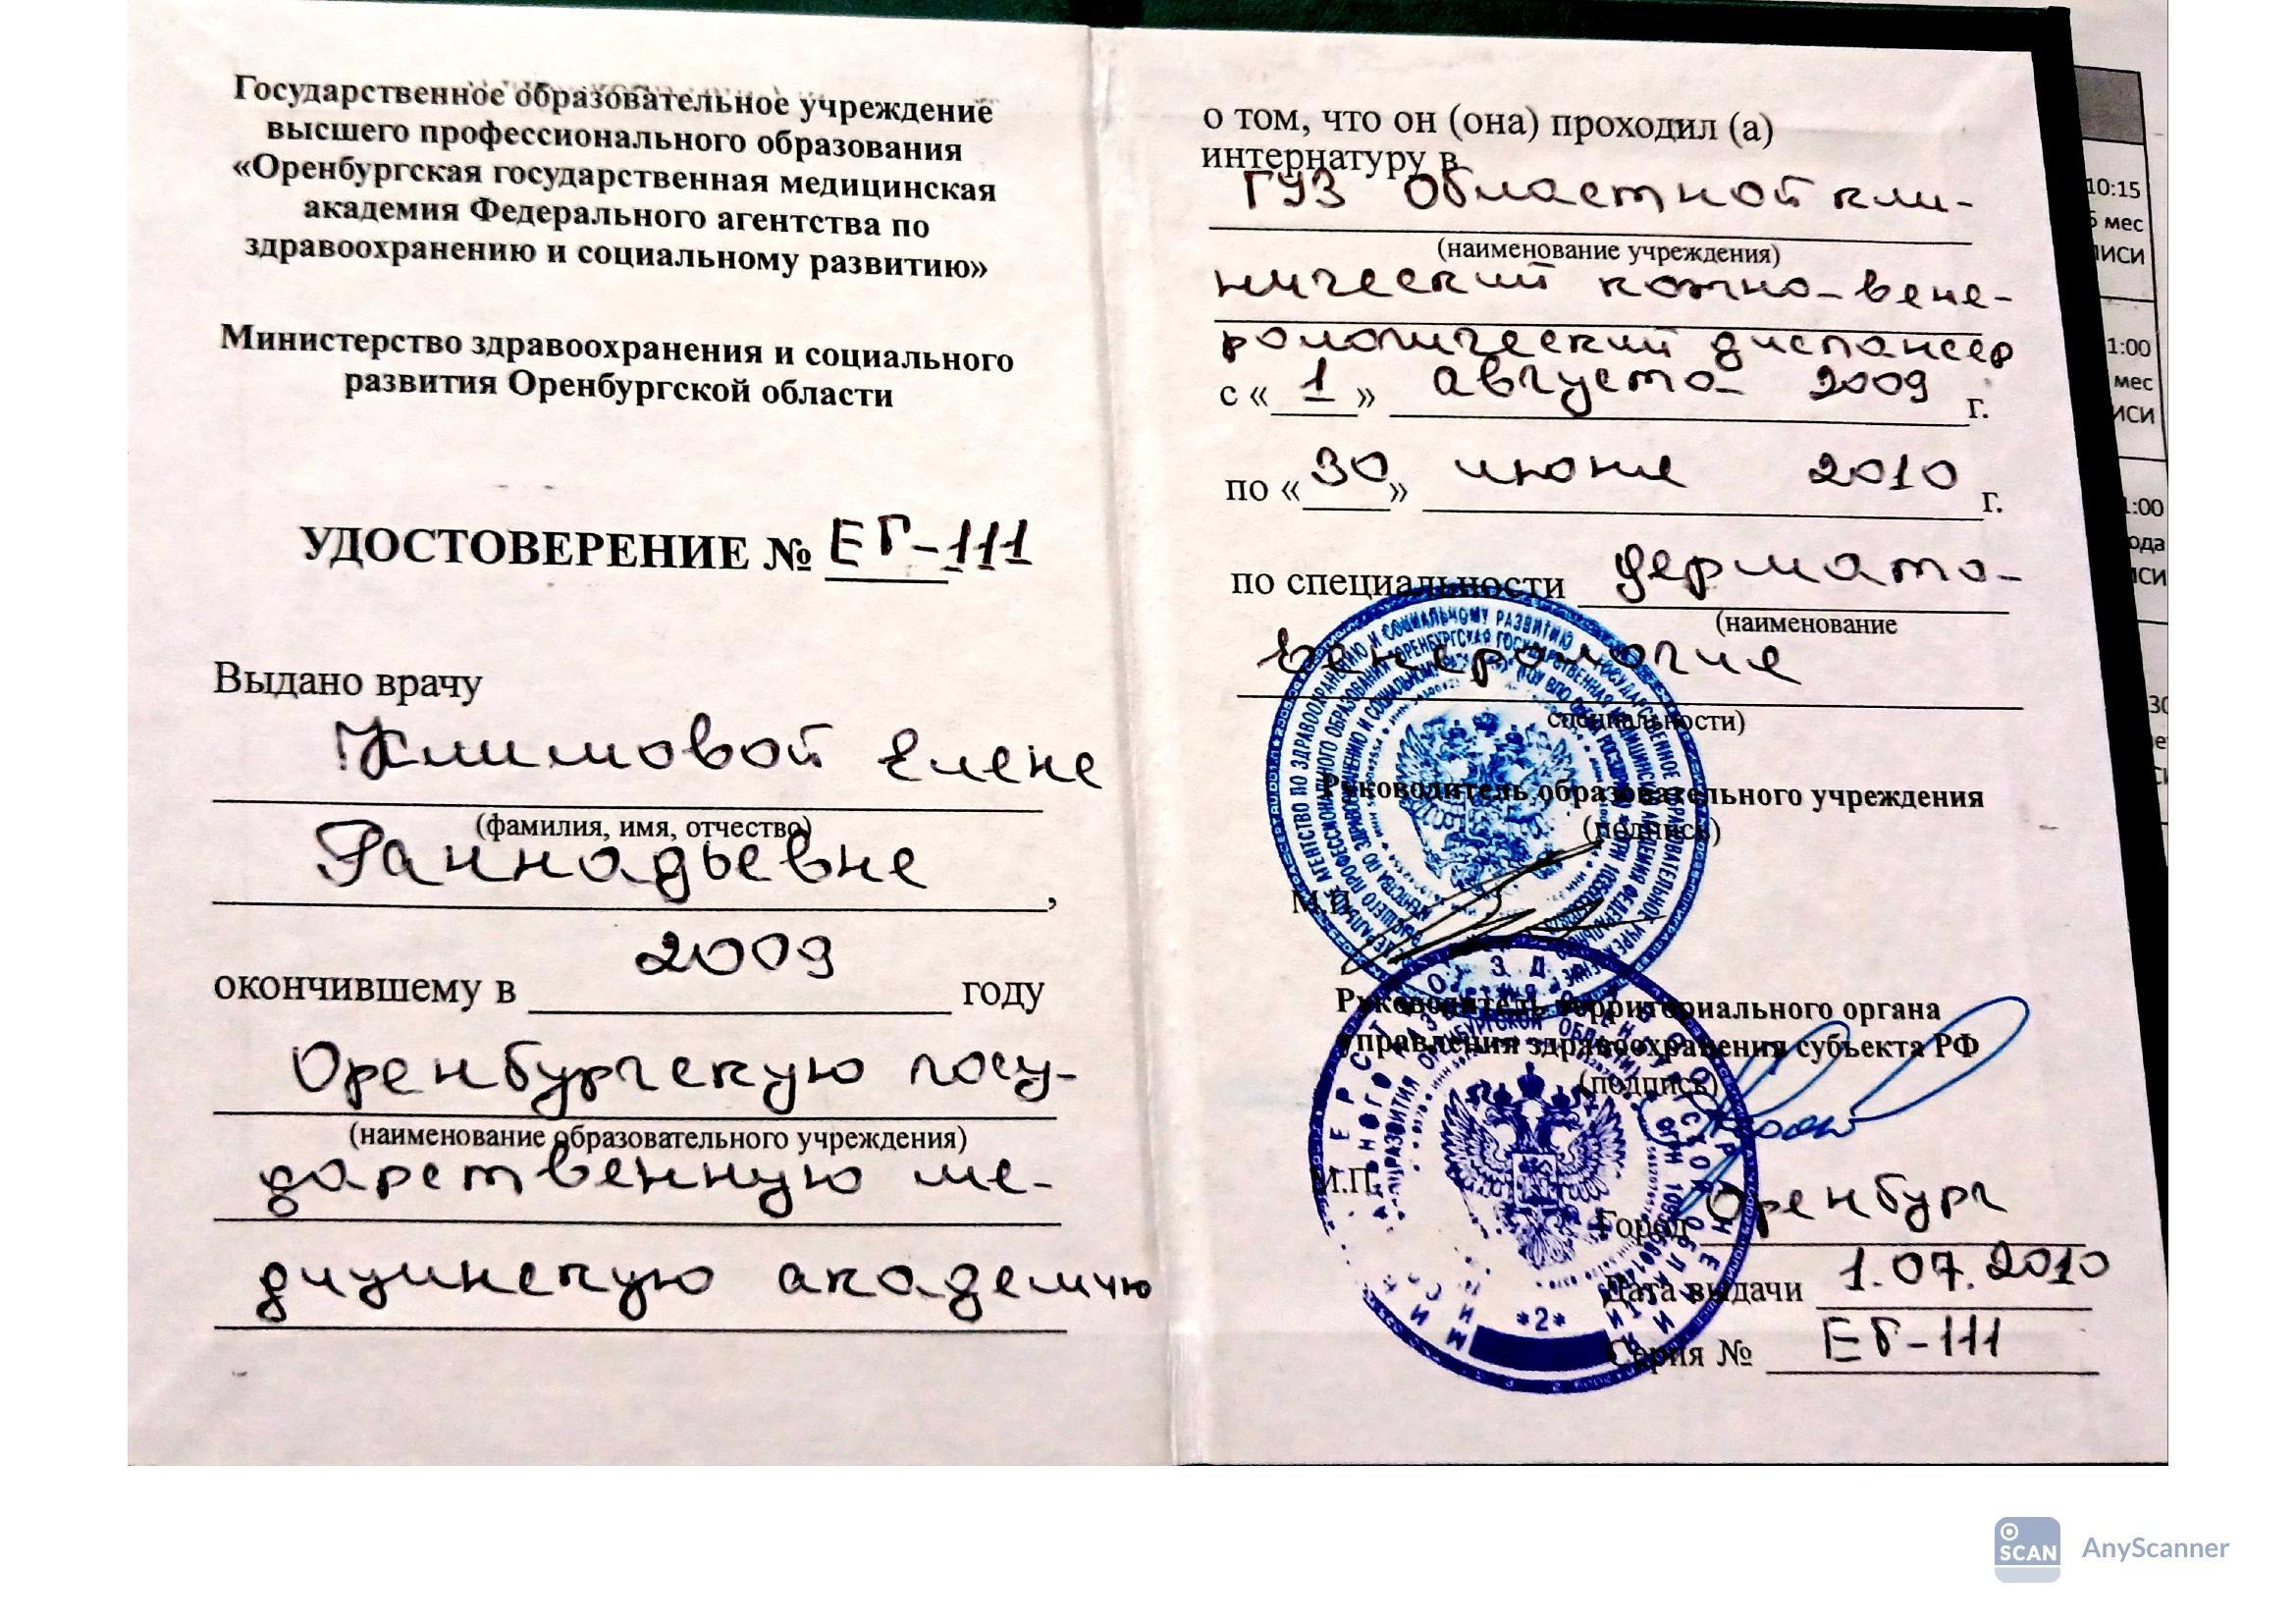 Государственное образовательное учреждение
высшего профессионального образования
«Оренбургская государственная медицинская
академия Федерального агентства по
здравоохранению и социальному развитию»
Министерство здравоохранения и социального
развития Оренбургской области
УДОСТОВЕРЕНИЕ № ЕГ-111
Выдано врачу
Климовой Елене
(фамилия, имя, отчество)
Геннадьевне,
окончившему в 2009 году
Оренбургскую госу-
(наименование образовательного учреждения)
дарственную ме-
дицинскую академию
о том, что он (она) проходил (а)
интернатуру в
ГУЗ Областной кли-
(наименование учреждения)
нический кожно-вене-
рологический диспансер
с « 1 » августа 2009 г.
по «30» июня 2010 г.
по специальности дермато-
(наименование
венерология
специальности)
Руководитель образовательного учреждения
(подпись)
М.П.
Руководитель территориального органа
управления здравоохранения субъекта РФ
(подпись)
М.П.
Город Оренбург
Дата выдачи 1.07.2010
*2*
Серия № ЕГ-111
10:15
мес
1:00
мес
SCAN AnyScanner